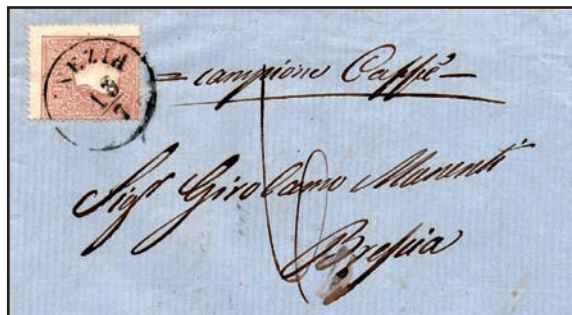 VENEZIA
18
7
= campione Caffè —
Sigr Girolamo Manenti
Brescia